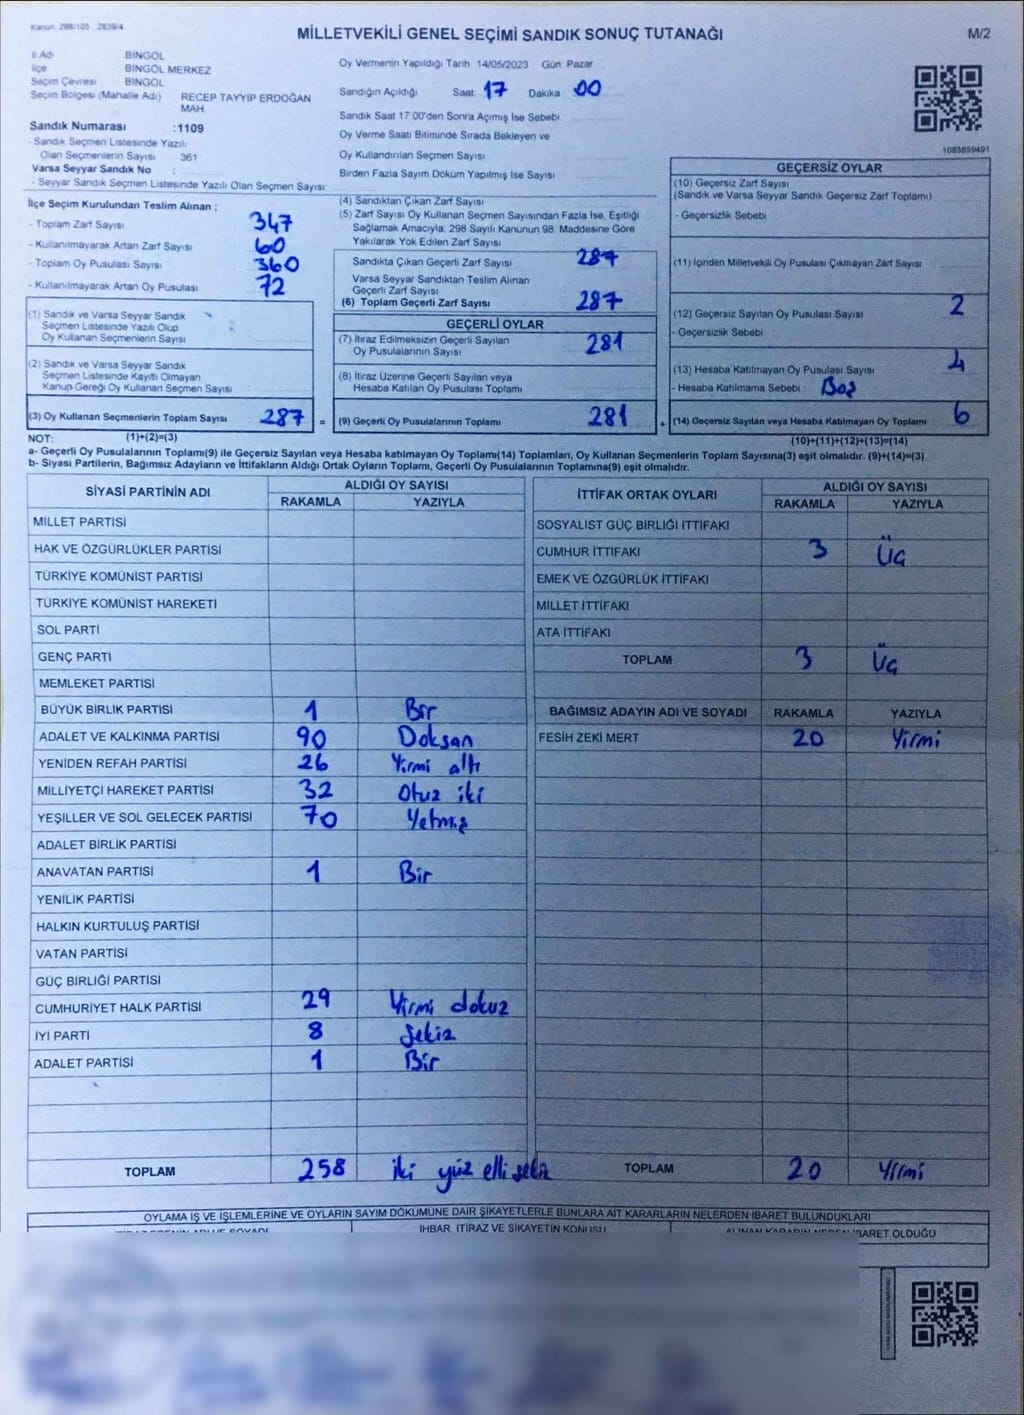 Kanun: 298/105 , 2839/4
MİLLETVEKİLİ GENEL SEÇİMİ SANDIK SONUÇ TUTANAĞI
M/2
İl Adı BİNGÖL
İlçe BİNGÖL MERKEZ
Seçim Çevresi BİNGÖL
Seçim Bölgesi (Mahalle Adı) RECEP TAYYİP ERDOĞAN
MAH
Sandık Numarası :1109
- Sandık Seçmen Listesinde Yazılı
Olan Seçmenlerin Sayısı : 361
Varsa Seyyar Sandık No :
- Seyyar Sandık Seçmen Listesinde Yazılı Olan Seçmen Sayısı:
Oy Vermenin Yapıldığı Tarih 14/05/2023 Gün Pazar
Sandığın Açıldığı Saat 17 Dakika 00
Sandık Saat 17:00'den Sonra Açımış İse Sebebi
Oy Verme Saati Bitiminde Sırada Bekleyen ve
Oy Kullandırılan Seçmen Sayısı
Birden Fazla Sayım Döküm Yapılmış İse Sayısı
1083859491
İlçe Seçim Kurulundan Teslim Alınan ;
- Toplam Zarf Sayısı 347
- Kullanılmayarak Artan Zarf Sayısı 60
- Toplam Oy Pusulası Sayısı 360
- Kullanılmayarak Artan Oy Pusulası 72
(1) Sandık ve Varsa Seyyar Sandık
Seçmen Listesinde Yazılı Olup
Oy Kullanan Seçmenlerin Sayısı
(2) Sandık ve Varsa Seyyar Sandık
Seçmen Listesinde Kayıtlı Olmayan
Kanun Gereği Oy Kullanan Seçmen Sayısı
(3) Oy Kullanan Seçmenlerin Toplam Sayısı 287 =
(4) Sandıktan Çıkan Zarf Sayısı
(5) Zarf Sayısı Oy Kullanan Seçmen Sayısından Fazla İse, Eşitliği
Sağlamak Amacıyla; 298 Sayılı Kanunun 98. Maddesine Göre
Yakılarak Yok Edilen Zarf Sayısı
Sandıkta Çıkan Geçerli Zarf Sayısı 287
Varsa Seyyar Sandıktan Teslim Alınan
Geçerli Zarf Sayısı
(6) Toplam Geçerli Zarf Sayısı 287
GEÇERLİ OYLAR
(7) İtiraz Edilmeksizin Geçerli Sayılan
Oy Pusulalarının Sayısı 281
(8) İtiraz Üzerine Geçerli Sayılan veya
Hesaba Katılan Oy Pusulası Toplamı
(9) Geçerli Oy Pusulalarının Toplamı 281 +
GEÇERSİZ OYLAR
(10) Geçersiz Zarf Sayısı
(Sandık ve Varsa Seyyar Sandık Geçersiz Zarf Toplamı)
- Geçersizlik Sebebi
(11) İçinden Milletvekili Oy Pusulası Çıkmayan Zarf Sayısı
(12) Geçersiz Sayılan Oy Pusulası Sayısı 2
- Geçersizlik Sebebi
(13) Hesaba Katılmayan Oy Pusulası Sayısı 4
- Hesaba Katılmama Sebebi Boş
(14) Geçersiz Sayılan veya Hesaba Katılmayan Oy Toplamı 6
NOT: (1)+(2)=(3) (10)+(11)+(12)+(13)=(14)
a- Geçerli Oy Pusulalarının Toplamı(9) ile Geçersiz Sayılan veya Hesaba katılmayan Oy Toplamı(14) Toplamları, Oy Kullanan Seçmenlerin Toplam Sayısına(3) eşit olmalıdır. (9)+(14)=(3).
b- Siyasi Partilerin, Bağımsız Adayların ve İttifakların Aldığı Ortak Oyların Toplamı, Geçerli Oy Pusulalarının Toplamına(9) eşit olmalıdır.
SİYASİ PARTİNİN ADI ALDIĞI OY SAYISI
RAKAMLA YAZIYLA
MİLLET PARTİSİ
HAK VE ÖZGÜRLÜKLER PARTİSİ
TÜRKİYE KOMÜNİST PARTİSİ
TÜRKİYE KOMÜNİST HAREKETİ
SOL PARTİ
GENÇ PARTİ
MEMLEKET PARTİSİ
BÜYÜK BİRLİK PARTİSİ 1 Bir
ADALET VE KALKINMA PARTİSİ 90 Doksan
YENİDEN REFAH PARTİSİ 26 Yirmi altı
MİLLİYETÇİ HAREKET PARTİSİ 32 Otuz iki
YEŞİLLER VE SOL GELECEK PARTİSİ 70 Yetmiş
ADALET BİRLİK PARTİSİ
ANAVATAN PARTİSİ 1 Bir
YENİLİK PARTİSİ
HALKIN KURTULUŞ PARTİSİ
VATAN PARTİSİ
GÜÇ BİRLİĞİ PARTİSİ
CUMHURİYET HALK PARTİSİ 29 Yirmi dokuz
İYİ PARTİ 8 Sekiz
ADALET PARTİSİ 1 Bir
TOPLAM 258 iki yüz elli sekiz
İTTİFAK ORTAK OYLARI ALDIĞI OY SAYISI
RAKAMLA YAZIYLA
SOSYALİST GÜÇ BİRLİĞİ İTTİFAKI
CUMHUR İTTİFAKI 3 Üç
EMEK VE ÖZGÜRLÜK İTTİFAKI
MİLLET İTTİFAKI
ATA İTTİFAKI
TOPLAM 3 Üç
BAĞIMSIZ ADAYIN ADI VE SOYADI RAKAMLA YAZIYLA
FESİH ZEKİ MERT 20 Yirmi
TOPLAM 20 Yirmi
OYLAMA İŞ VE İŞLEMLERİNE VE OYLARIN SAYIM DÖKÜMÜNE DAİR ŞİKAYETLERLE BUNLARA AİT KARARLARIN NELERDEN İBARET BULUNDUKLARI
İHBAR, İTİRAZ VE ŞİKAYETİN KONUSU
İBARET OLDUĞU